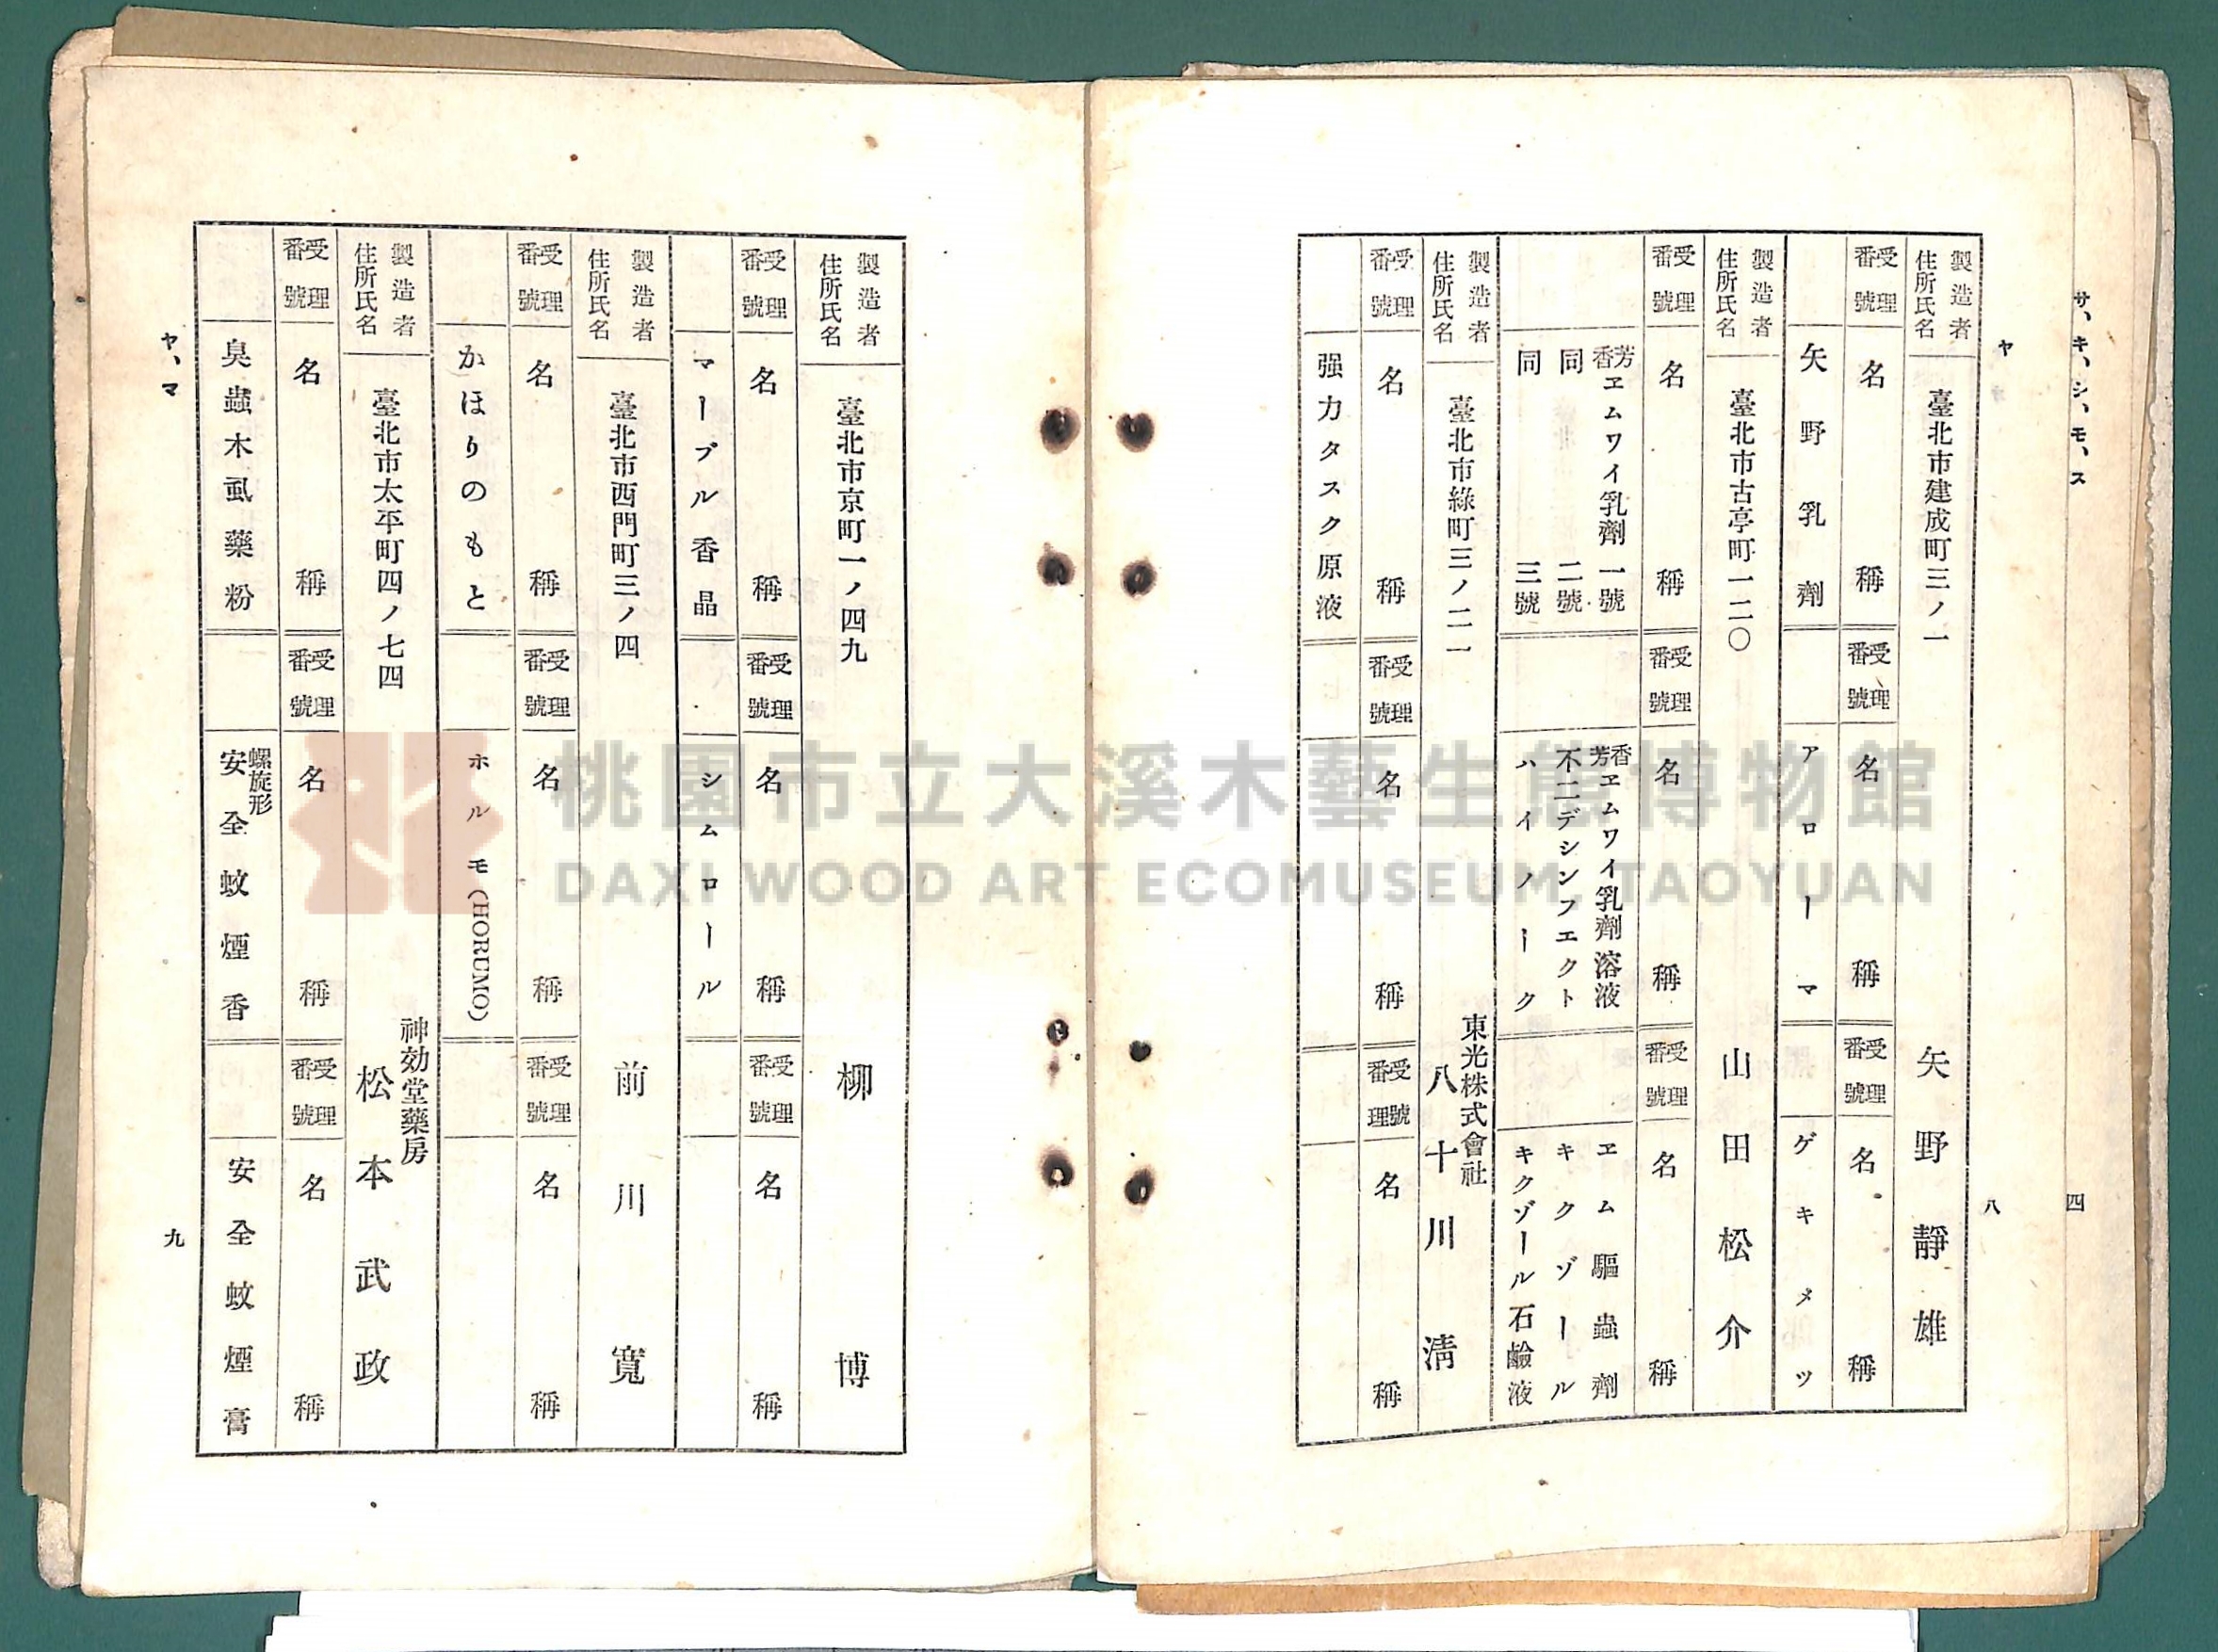 サ、キ、シ、モ、ス
四
ヤ
八
製造者
住所氏名
臺北市建成町三ノ一
矢野靜雄
受理
番號
名稱
受理
番號
名稱
受理
番號
名稱
矢野乳劑
アローマ
ゲキメツ
製造者
住所氏名
臺北市古亭町一二〇
山田松介
受理
番號
名稱
受理
番號
名稱
受理
番號
名稱
芳香ヱムワイ乳劑一號
同二號
同三號
香芳ヱムワイ乳劑溶液
不二デシンフエクト
ハイノーク
ヱム驅蟲劑
キクゾール
キクゾール石鹼液
製造者
住所氏名
臺北市綠町三ノ二一
東光株式會社
八十川淸
受理
番號
名稱
受理
番號
名稱
受號
番理
名稱
强力タスク原液
製造者
住所氏名
臺北市京町一ノ四九
柳博
受理
番號
名稱
受理
番號
名稱
受理
番號
名稱
マーブル香晶
シムロール
製造者
住所氏名
臺北市西門町三ノ四
前川寬
受理
番號
名稱
受理
番號
名稱
受理
番號
名稱
かほりのもと
ホルモ(HORUMO)
製造者
住所氏名
臺北市太平町四ノ七四
神効堂藥房
松本武政
受理
番號
名稱
受理
番號
名稱
受理
番號
名稱
臭蟲木虱藥粉
螺旋形
安全蚊煙香
安全蚊煙膏
ヤ、マ
九
桃園市立大溪木藝生態博物館
DAXI WOOD ART ECOMUSEUM, TAOYUAN